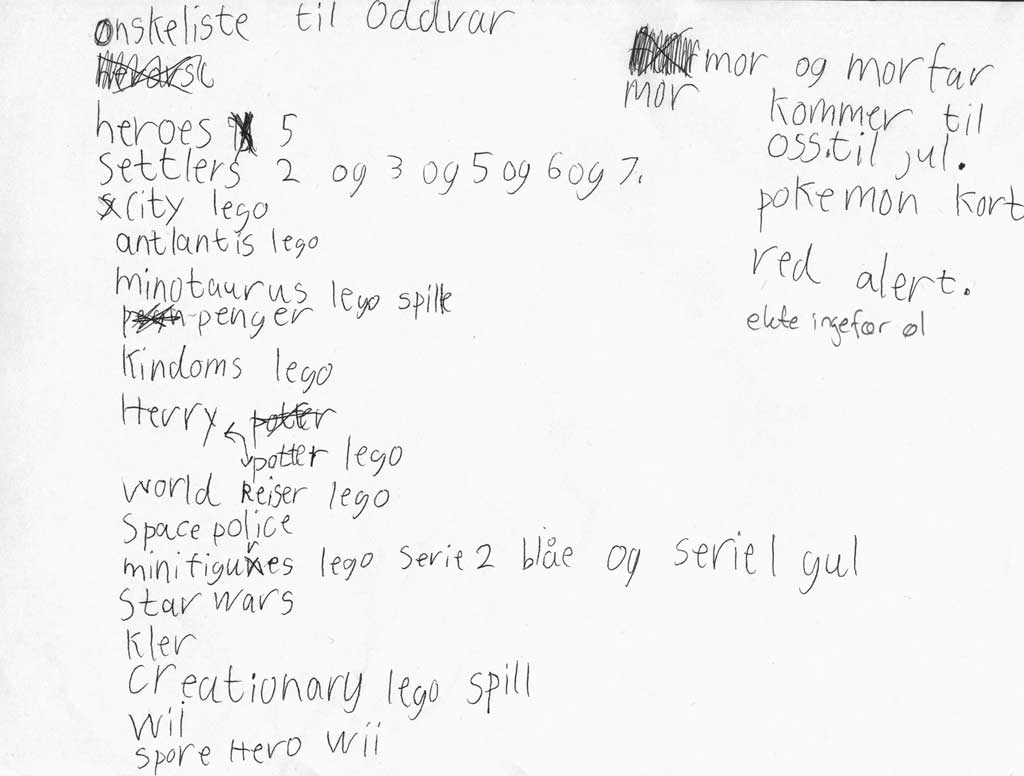 ønskeliste til Oddvar
heroes 5
settlers 2 og 3 og 5 og 6 og 7.
City lego
antlantis lego
minotaurus lego spill
penger
Kindoms lego
Herry
potter lego
world Reiser lego
Space police
minifigures lego serie 2 blåe og serie 1 gul
Star wars
Kler
Creationary lego spill
Wii
spore Hero Wii
mor mor og mor far
kommer til
oss.til jul.
pokemon kort
red alert.
ekte ingefær øl